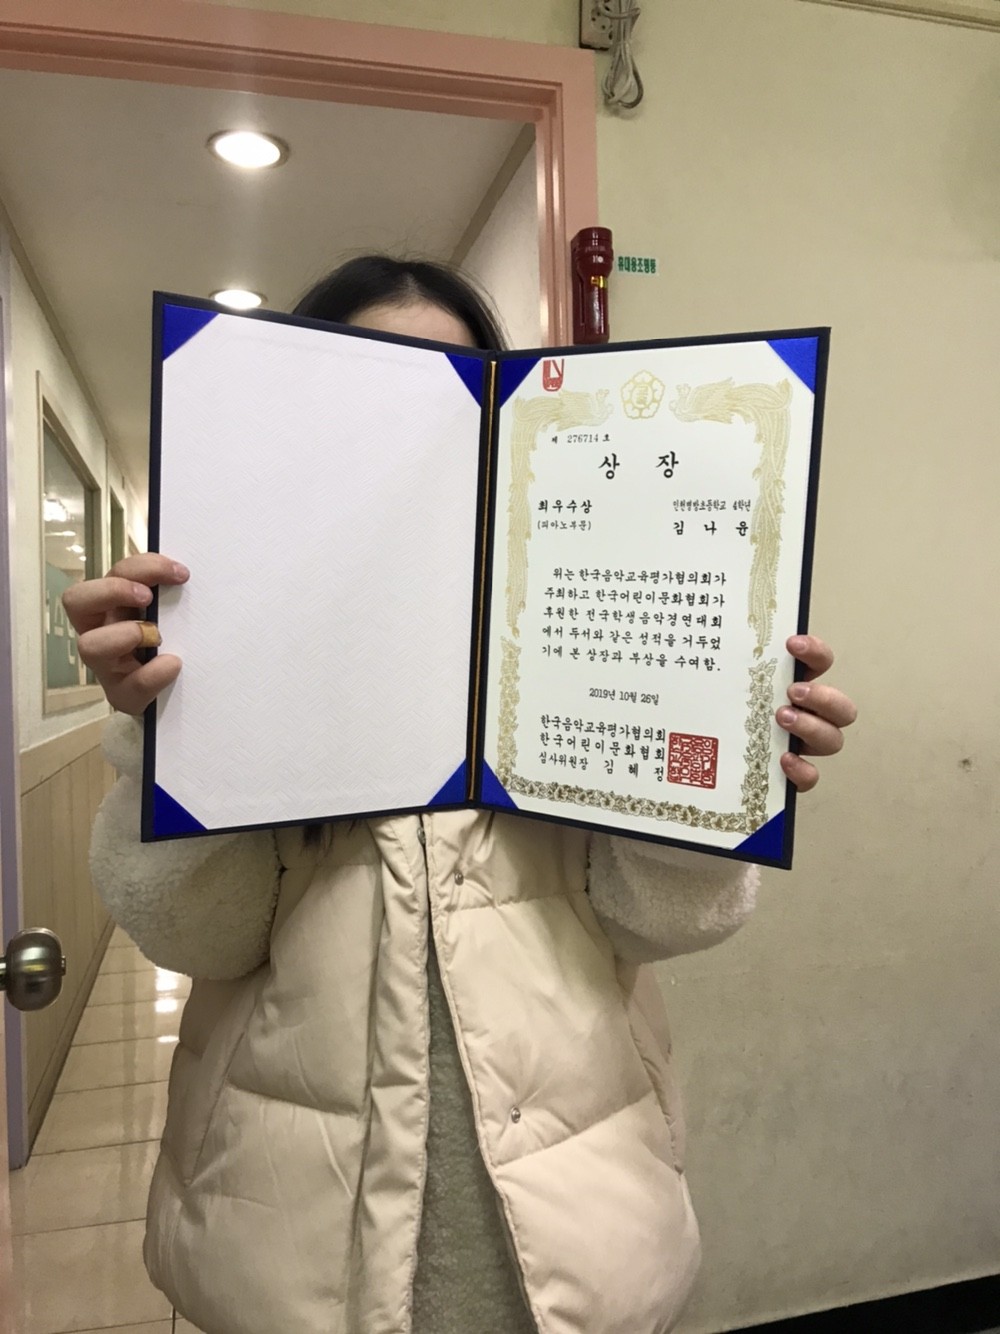 휴대용조명등
제 276714 호
상 장
최우수상
(피아노부문)
인천병방초등학교 4학년
김 나 윤
위는 한국음악교육평가협의회가
주최하고 한국어린이문화협회가
후원한 전국학생음악경연대회
에서 두서와 같은 성적을 거두었
기에 본 상장과 부상을 수여함.
2019년 10월 26일
한국음악교육평가협의회
한국어린이문화협회
심사위원장 김 혜 정